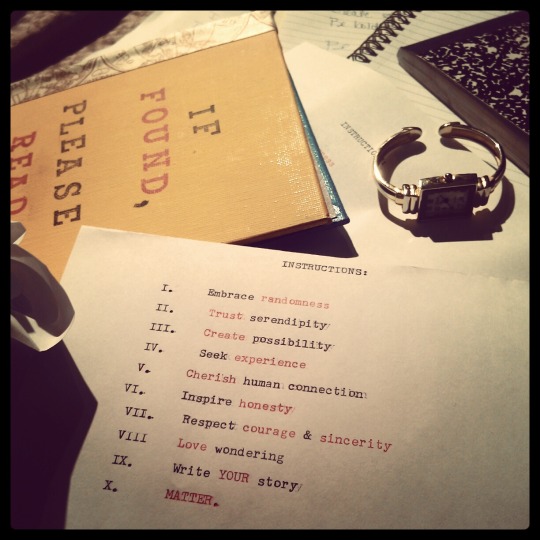 IF
FOUND,
PLEASE
READ
INSTRUCTIONS:
I. Embrace randomness
II. Trust serendipity
III. Create possibility
IV. Seek experience
V. Cherish human connection
VI. Inspire honesty
VII. Respect courage & sincerity
VIII Love wondering
IX. Write YOUR story
X. MATTER.